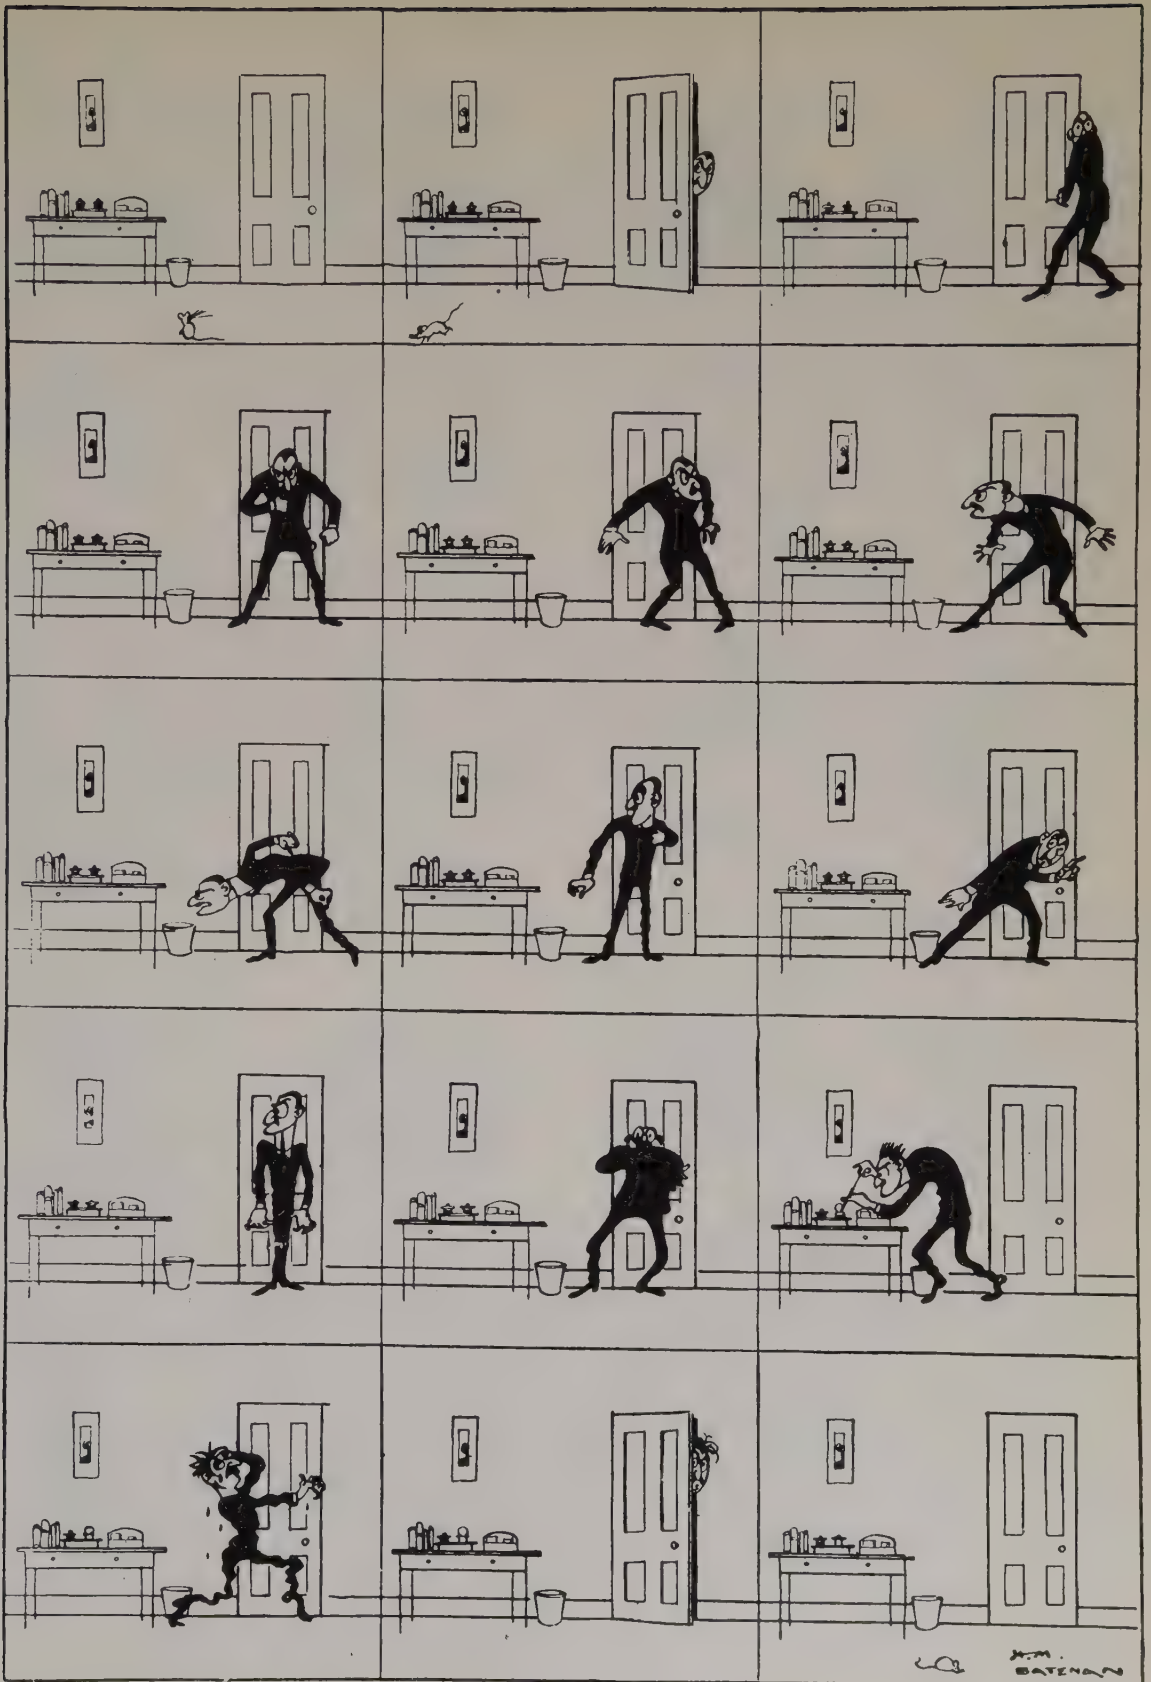 H.M.
BATEMAN